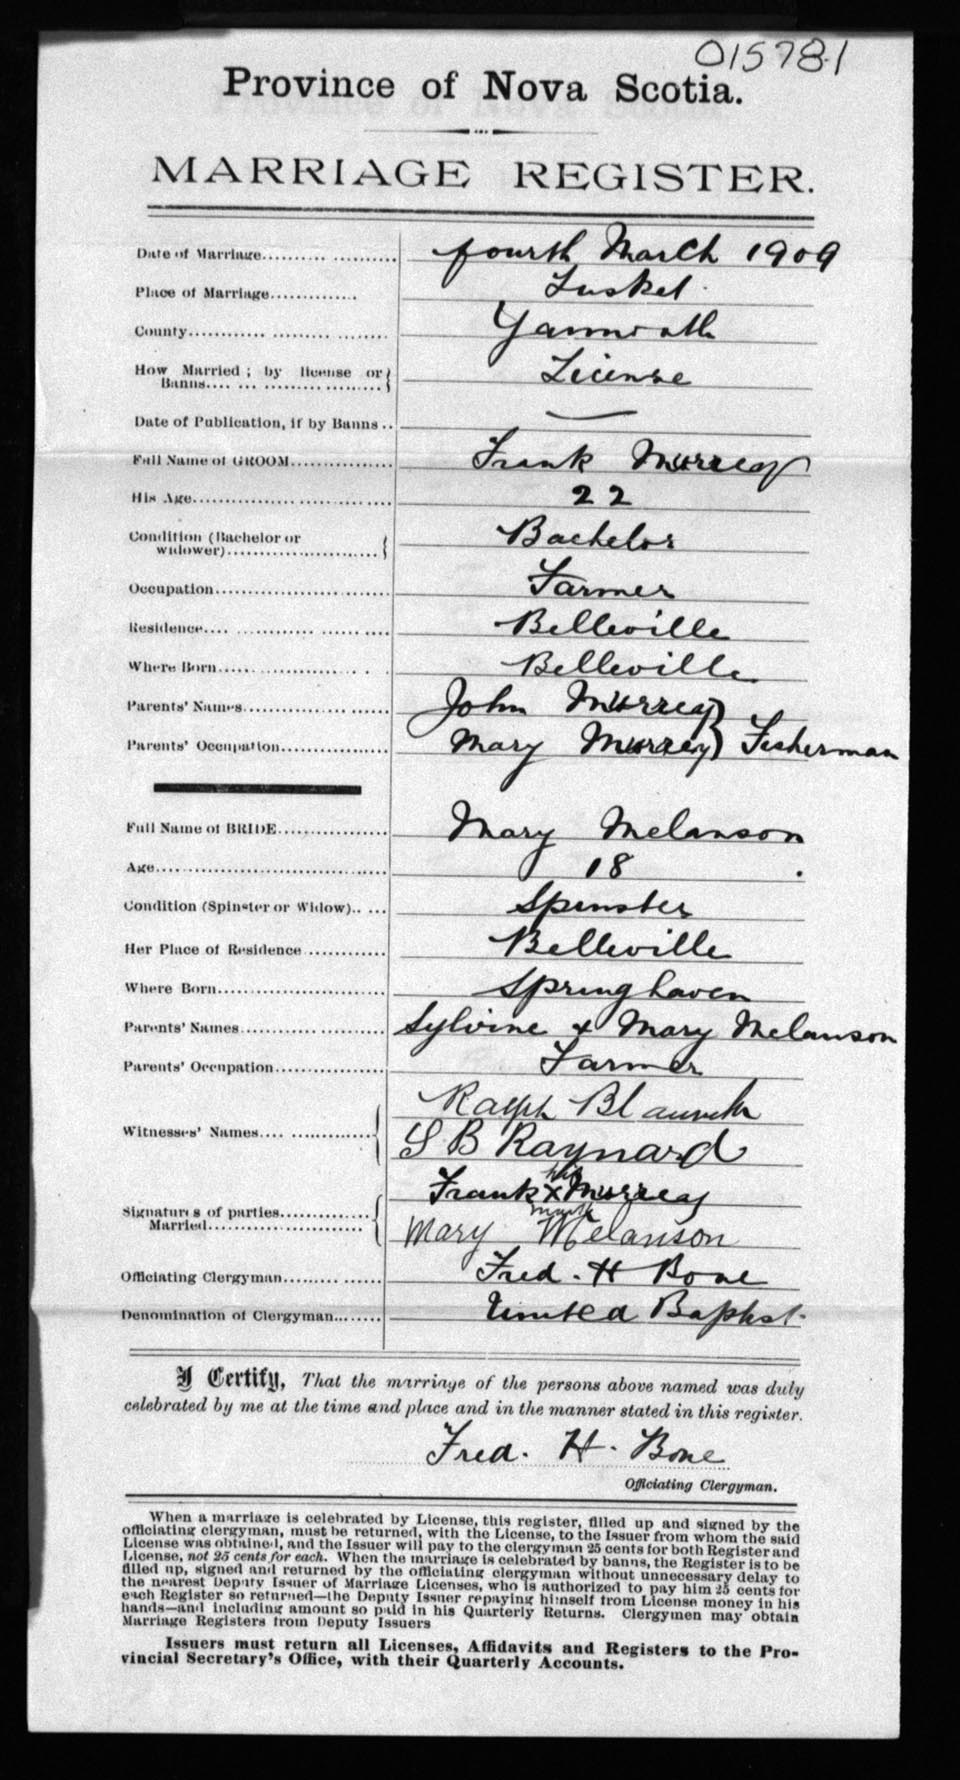 015781
Province of Nova Scotia.
MARRIAGE REGISTER.
Date of Marriage fourth March 1909
Place of Marriage Tusket
County Yarmouth
How Married; by license or Banns License
Date of Publication, if by Banns —
Full Name of GROOM Frank Murrey
His Age 22
Condition (Bachelor or widower) Bachelor
Occupation Farmer
Residence Belleville
Where Born Belleville
Parents' Names John Murrey
Parents' Occupation Mary Murrey } Fisherman
Full Name of BRIDE Mary Melanson
Age 18
Condition (Spinster or Widow) Spinster
Her Place of Residence Belleville
Where Born Springhaven
Parents' Names Sylvine & Mary Melanson
Parents' Occupation Farmer
Ralph
Witnesses' Names S B Raynard
Frank his x mark Murrey
Signatures of parties Married Mary Melanson
Officiating Clergyman Fred. H Bone
Denomination of Clergyman United Baptist
I Certify, That the marriage of the persons above named was duly
celebrated by me at the time and place and in the manner stated in this register.
Fred. H. Bone
Officiating Clergyman.
When a marriage is celebrated by License, this register, filled up and signed by the
officiating clergyman, must be returned, with the License, to the Issuer from whom the said
License was obtained, and the Issuer will pay to the clergyman 25 cents for both Register and
License, not 25 cents for each. When the marriage is celebrated by banns, the Register is to be
filled up, signed and returned by the officiating clergyman without unnecessary delay to
the nearest Deputy Issuer of Marriage Licenses, who is authorized to pay him 25 cents for
each Register so returned—the Deputy Issuer repaying himself from License money in his
hands—and including amount so paid in his Quarterly Returns. Clergymen may obtain
Marriage Registers from Deputy Issuers
Issuers must return all Licenses, Affidavits and Registers to the Pro-
vincial Secretary's Office, with their Quarterly Accounts.